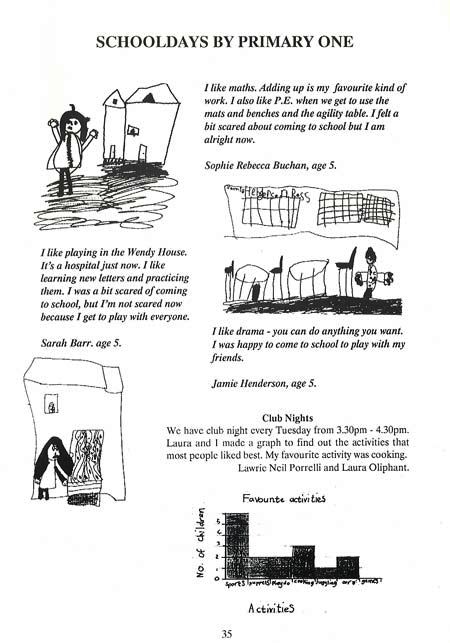 SCHOOLDAYS BY PRIMARY ONE
I like maths. Adding up is my favourite kind of
work. I also like P.E. when we get to use the
mats and benches and the agility table. I felt a
bit scared about coming to school but I am
alright now.
Sophie Rebecca Buchan, age 5.
I like playing in the Wendy House.
It's a hospital just now. I like
learning new letters and practicing
them. I was a bit scared of coming
to school, but I'm not scared now
because I get to play with everyone.
Sarah Barr. age 5.
I like drama - you can do anything you want.
I was happy to come to school to play with my
friends.
Jamie Henderson, age 5.
Club Nights
We have club night every Tuesday from 3.30pm - 4.30pm.
Laura and I made a graph to find out the activities that
most people liked best. My favourite activity was cooking.
Lawrie Neil Porrelli and Laura Oliphant.
Favourite activities
No. of children
sports puppets cooking art games
Activities
35